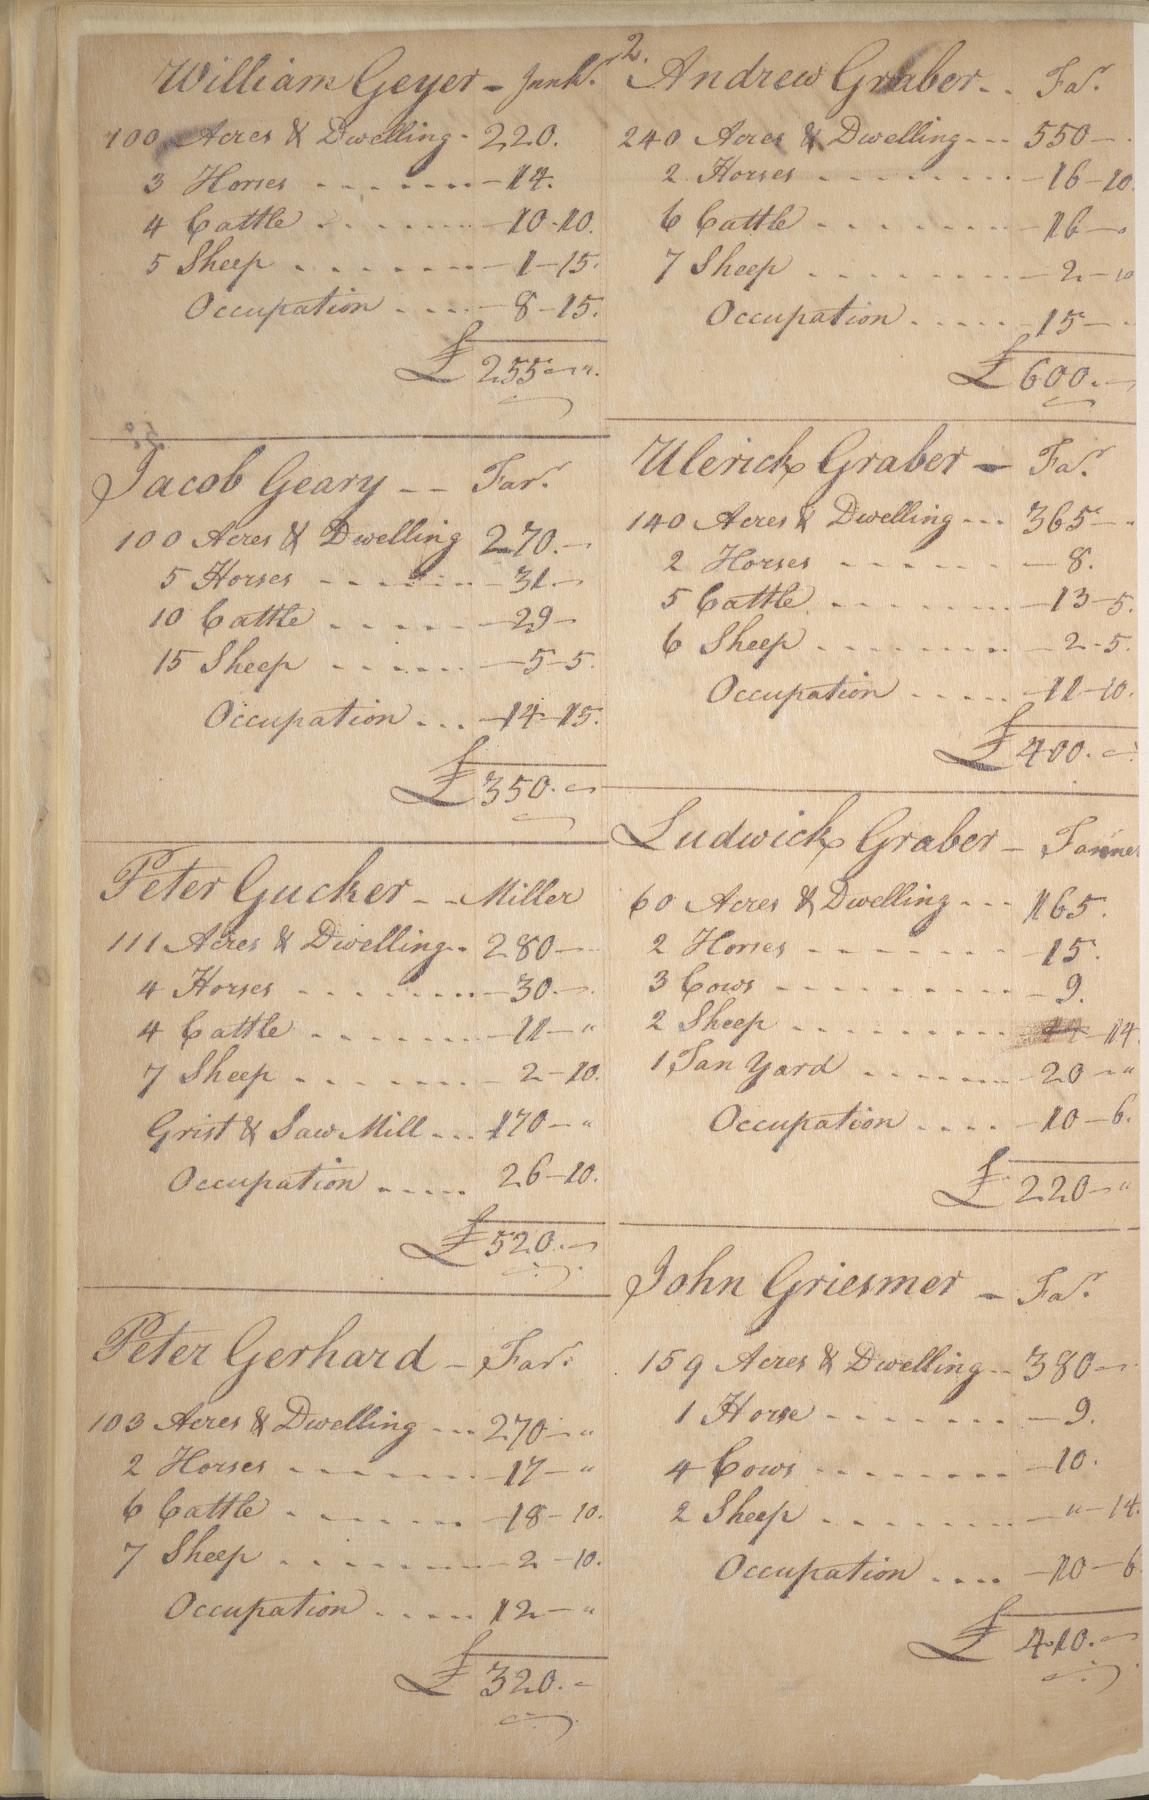 2.
William Geyer - Innkr.
100 Acres & Dwelling - 220.
3 Horses - 14.
4 Cattle - 10-10.
5 Sheep - 1-15.
Occupation - 8-15.
£ 255-"-".
Jacob Geary - Far.
100 Acres & Dwelling 270.-
5 Horses - 31-
10 Cattle - 29-
15 Sheep - 5-5.
Occupation - 14-15.
£ 350.-
Peter Gucker - Miller
111 Acres & Dwelling - 280-
4 Horses - 30-
4 Cattle - 11-"
7 Sheep - 2-10.
Grist & Saw Mill - 170-"
Occupation - 26-10.
£ 520.-
Peter Gerhard - Far.
103 Acres & Dwelling - 270-"
2 Horses - 17-"
6 Cattle - 18-10.
7 Sheep - 2-10.
Occupation - 12-"
£ 320.-
Andrew Graber - Far.
240 Acres & Dwelling - 550-
2 Horses - 16-10.
6 Cattle - 16-
7 Sheep - 2-10
Occupation - 15-
£ 600.-
Ulerick Graber - Far.
140 Acres & Dwelling - 365-
2 Horses - 8.
5 Cattle - 13-5.
6 Sheep - 2-5.
Occupation - 11-10.
£ 400.-
Ludwick Graber - Tanner
60 Acres & Dwelling - 165.
2 Horses - 15.
3 Cows - 9.
2 Sheep - 14.
1 Tan Yard - 20-"
Occupation - 10-6.
£ 220-"
John Griesmer - Far.
159 Acres & Dwelling - 380-
1 Horse - 9.
4 Cows - 10.
2 Sheep - "-14.
Occupation - 10-6
£ 410.-